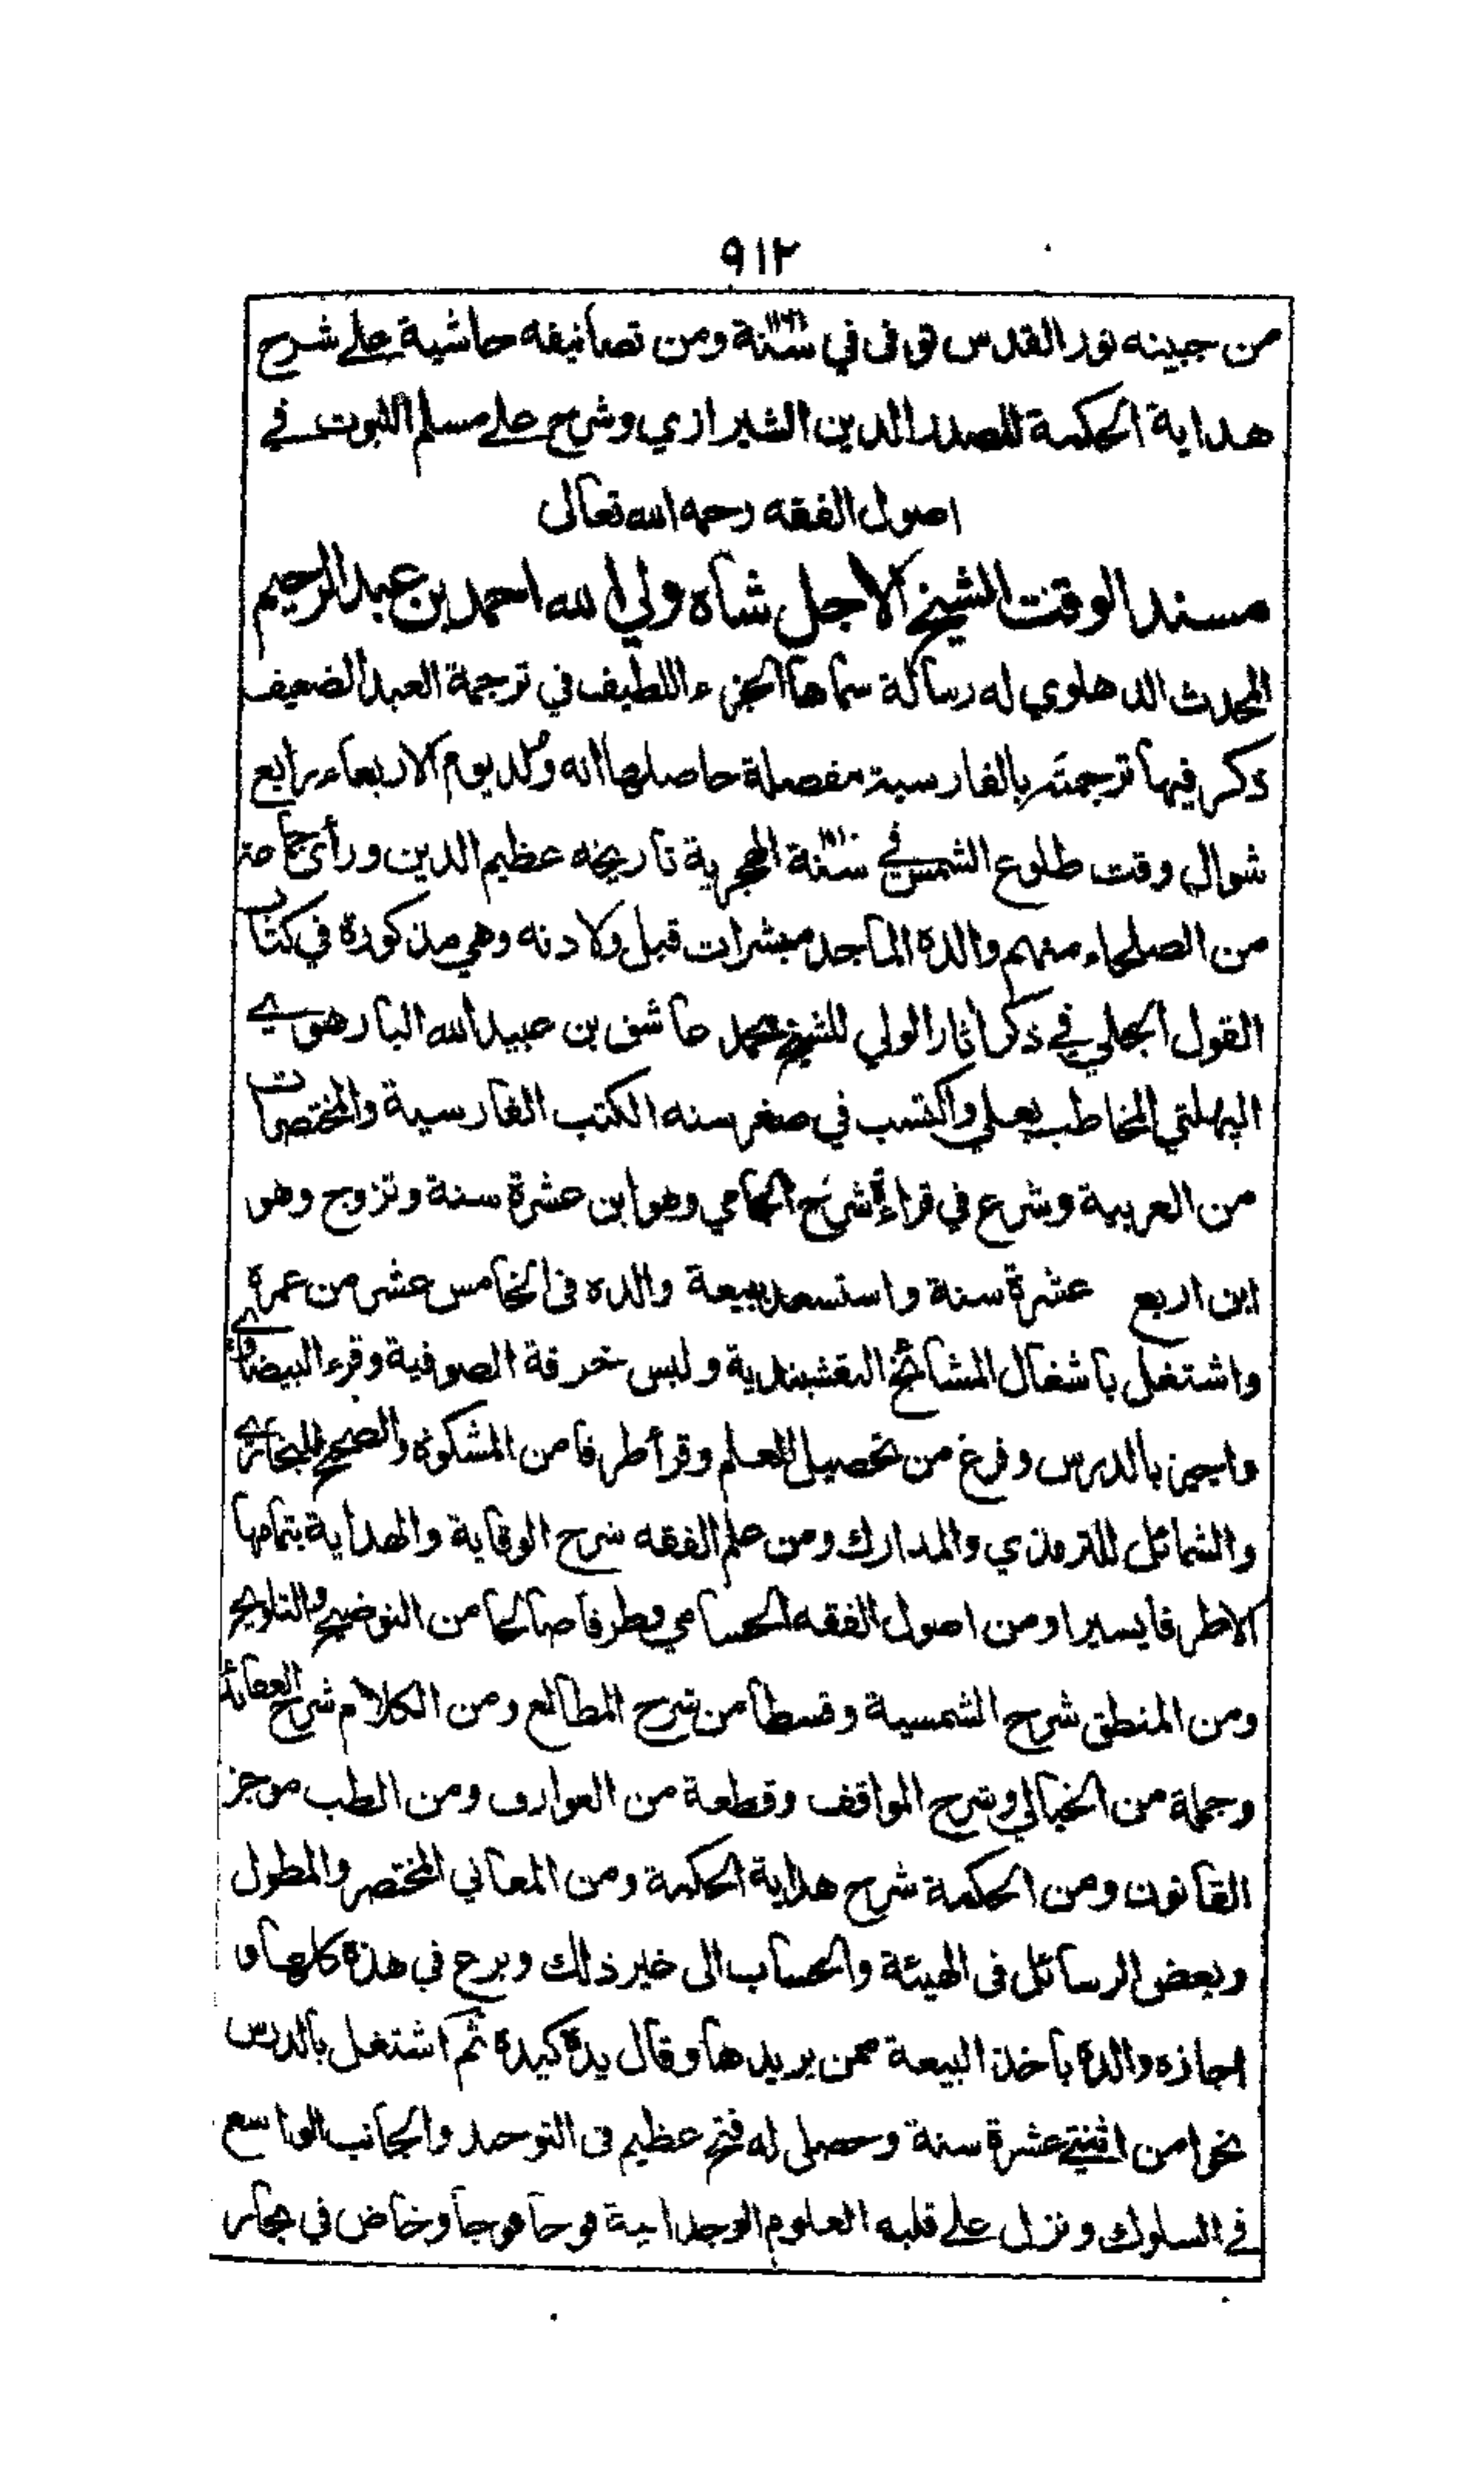 ٩١٢
من جبينه نور القدس توفي في سنة ١١٦١ ومن تصانيفه حاشية على شرح
هداية الحكمة للصدر الدين الشيرازي وشرح على مسلم الثبوت في
اصول الفقه رحمه الله تعالى
مسند الوقت الشيخ الاجل شاه ولي الله احمد بن عبد الرحيم
المحدث الدهلوي له رسالة سماها الجزء اللطيف في ترجمة العبد الضعيف
ذكر فيها ترجمته بالفارسية مفصلة حاصلها انه ولد يوم الاربعاء رابع
شوال وقت طلوع الشمس في سنة الهجرية تاريخه عظيم الدين ورأى جماعة
من الصلحاء منهم والده الماجد مبشرات قبل ولادته وهي مذكورة في كتاب
القول الجلي في ذكر اثار الولي للشيخ محمد عاشق بن عبيد الله البارهوي
البهلتي المخاطب بعلي واكتسب في صغر سنه الكتب الفارسية والمختصرات
من العربية وشرع في قراءة شرح الجامي وهو ابن عشرة سنة وتزوج وهو
ابن اربع عشرة سنة واستسعد ببيعة والده فى الخامس عشر من عمره
واشتغل باشغال المشائخ النقشبندية ولبس خرقة الصوفية وقرء البيضاوي
واجيز بالدرس وفرغ من تحصيل العلم وقرأ طرفا من المشكوة والصحيح للبخاري
والشمائل للترمذي والمدارك ومن علم الفقه شرح الوقاية والهداية بتمامها
الا طرفا يسيرا ومن اصول الفقه الحسامي وطرفا صالحا من التوضيح والتلويح
ومن المنطق شرح الشمسية وقسطا من شرح المطالع ومن الكلام شرح العقائد
وجملة من الخيالي وشرح المواقف وقطعة من العوارف ومن الطب موجز
القانون ومن الحكمة شرح هداية الحكمة ومن المعاني المختصر والمطول
وبعض الرسائل فى الهيئة والحساب الى غير ذلك وبرع في هذه كلها و
اجازه والده باخذ البيعة ممن يريدها وقال يده كيده ثم اشتغل بالدرس
نحوا من اثنتي عشرة سنة وحصل له فتح عظيم فى التوحيد والجانب الواسع
في السلوك ونزل على قلبه العلوم الوجدانية فوجا فوجا وخاض في بحار